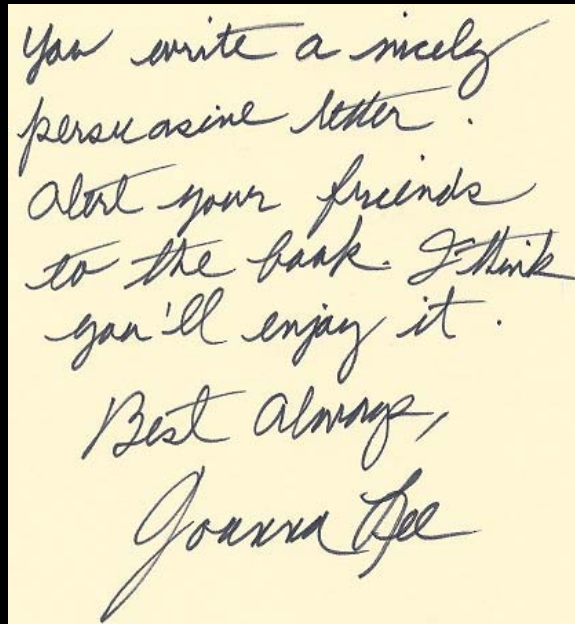 You write a nicely
persuasive letter.
Alert your friends
to the book. I think
you'll enjoy it.
Best Always,
Joanna Lee